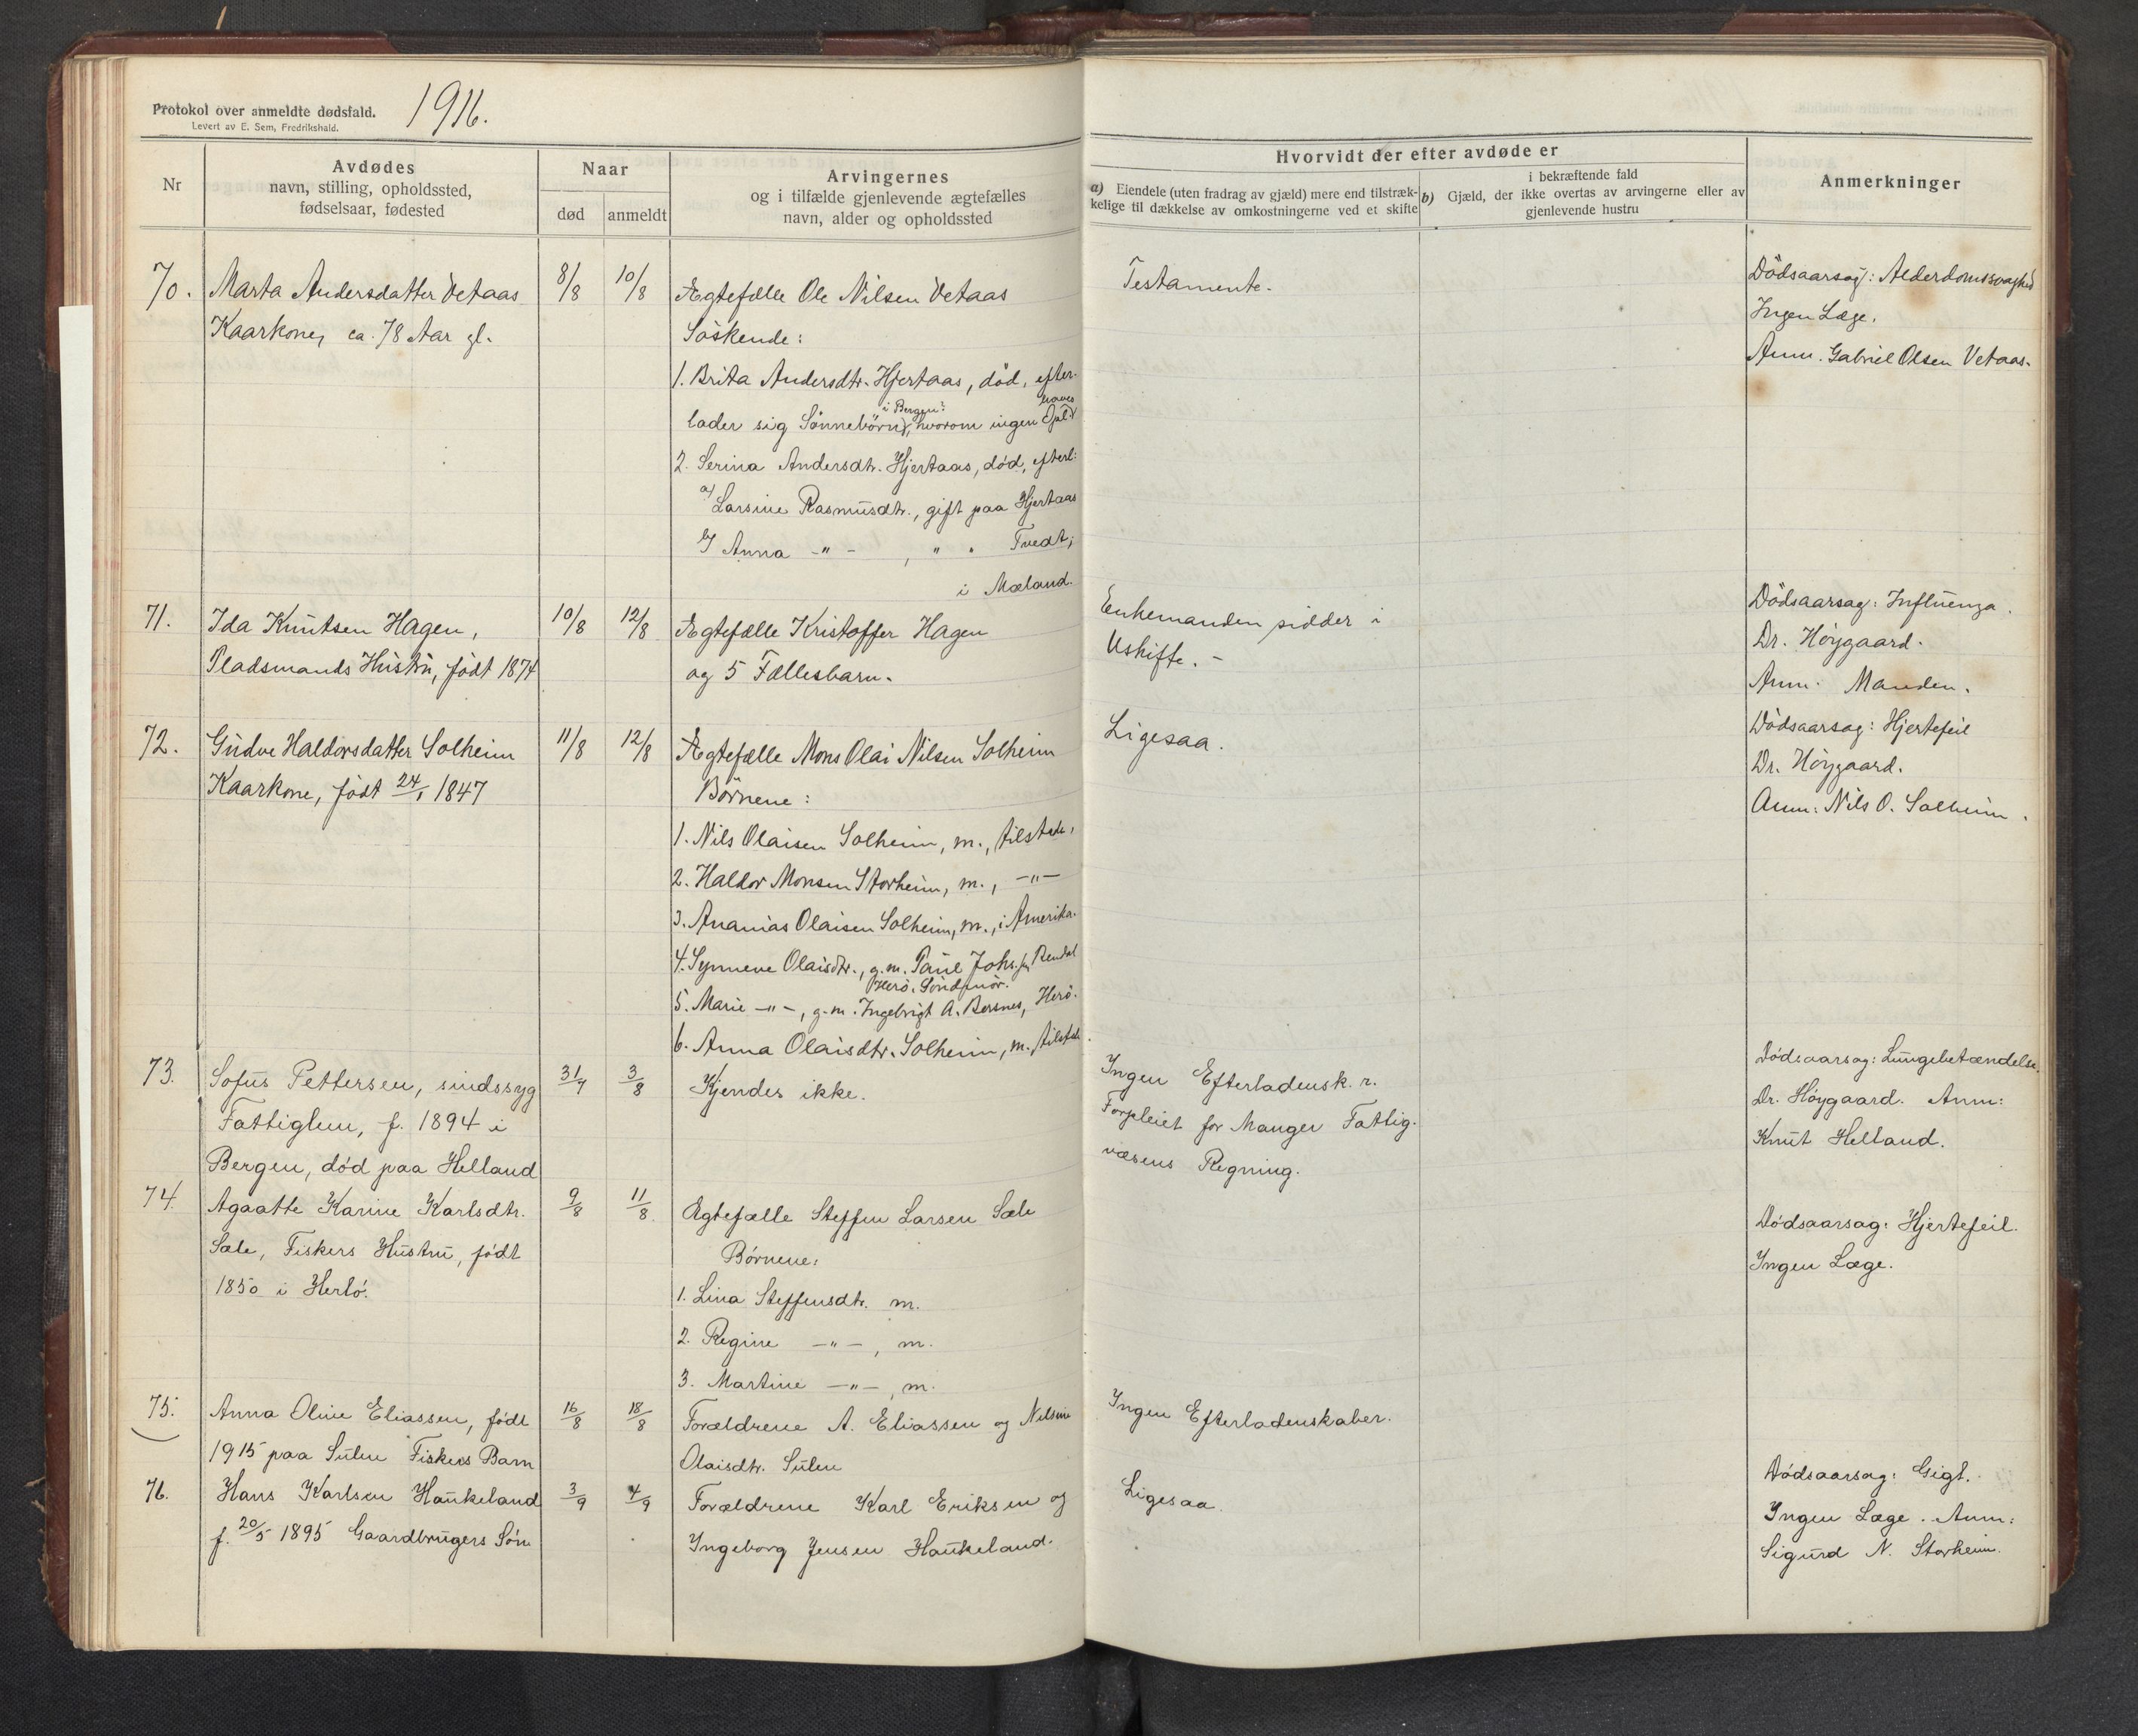 Protokol over anmeldte dødsfald.
Levert av E. Sem, Fredrikshald.
1916.
Nr
Avdødes
navn, stilling, opholdssted,
fødselsaar, fødested
Naar
død
anmeldt
Arvingernes
og i tilfælde gjenlevende ægtefælles
navn, alder og opholdssted
Hvorvidt der efter avdøde er
a) Eiendele (uten fradrag av gjæld) mere end tilstræk-
kelige til dækkelse av omkostningerne ved et skifte
i bekræftende fald
b) Gjæld, der ikke overtas av arvingerne eller av
gjenlevende hustru
Anmerkninger
70.
Marta Andersdatter Vetaas
Kaarkone, ca. 78 Aar gl.
8/8
10/8
Ægtefælle Ole Nilsen Vetaas
Söskende:
1. Brita Andersdtr. Hjertaas, död, efter-
lader sig Sönnebörn i Bergen, hvorom ingen Opl. haves
2. Serina Andersdtr. Hjertaas, död, efterl:
a) Larsine Rasmusdtr., gift paa Hjertaas
b) Anna -"- , " " Tvedt,
i Mæland.
Testamente.
Dödsaarsag: Alderdomssvaghed
Ingen Læge.
Anm. Gabriel Olsen Vetaas.
71.
Ida Knutsen Hagen,
Pladsmands Hustru, födt 1874
10/8
12/8
Ægtefælle Kristoffer Hagen
og 5 Fællesbarn.
Enkemanden sidder i
Uskifte. -
Dödsaarsag: Influenza.
Dr. Höygaard.
Anm. Manden.
72.
Gudve Haldorsdatter Solheim
Kaarkone, födt 24/1 1847
11/8
12/8
Ægtefælle Mons Olai Nilsen Solheim
Börnene:
1. Nils Olaisen Solheim, m., tilstede,
2. Haldor Monsen Storheim, m., -"-
3. Ananias Olaisen Solheim, m., i Amerika.
4. Synneve Olaisdtr., g.m. Paul Johs. Rendal
Herö, Söndmör.
5. Marie -"-, g.m. Ingebrigt A. Bersnes, Herö.
6. Anna Olaisdtr. Solheim, m. tilstede.
Ligesaa.
Dödsaarsag: Hjertefeil
Dr. Höygaard.
Anm: Nils O. Solheim.
73.
Sofus Pettersen, sindssyg
Fattiglem, f. 1894 i
Bergen, död paa Helland
31/7
3/8
Kjendes ikke.
Ingen Efterladensk. r.
Forpleiet for Manger Fattig-
væsens Regning.
Dödsaarsag: Lungebetændelse.
Dr. Höygaard. Anm:
Knut Helland.
74.
Agaatte Karine Karlsdtr.
Sæle, Fiskers Hustru, födt
1850 i Herlö.
9/8
11/8
Ægtefælle Steffen Larsen Sæle
Börnene:
1. Lina Steffensdtr. m.
2. Regine -"-, m.
3. Martine -"-, m.
Dödsaarsag: Hjertefeil.
Ingen Læge.
75.
Anna Oline Eliassen, födt
1915 paa Sulen Fiskers Barn
16/8
18/8
Forældrene A. Eliassen og Nilsine
Olaisdtr. Sulen
Ingen Efterladenskaber.
76.
Hans Karlsen Haukeland
f. 20/5 1895 Gaardbrugers Sön
3/9
4/9
Forældrene Karl Eriksen og
Ingeborg Jensen Haukeland.
Ligesaa.
Dödsaarsag: Gigt.
Ingen Læge. Anm:
Sigurd N. Storheim.